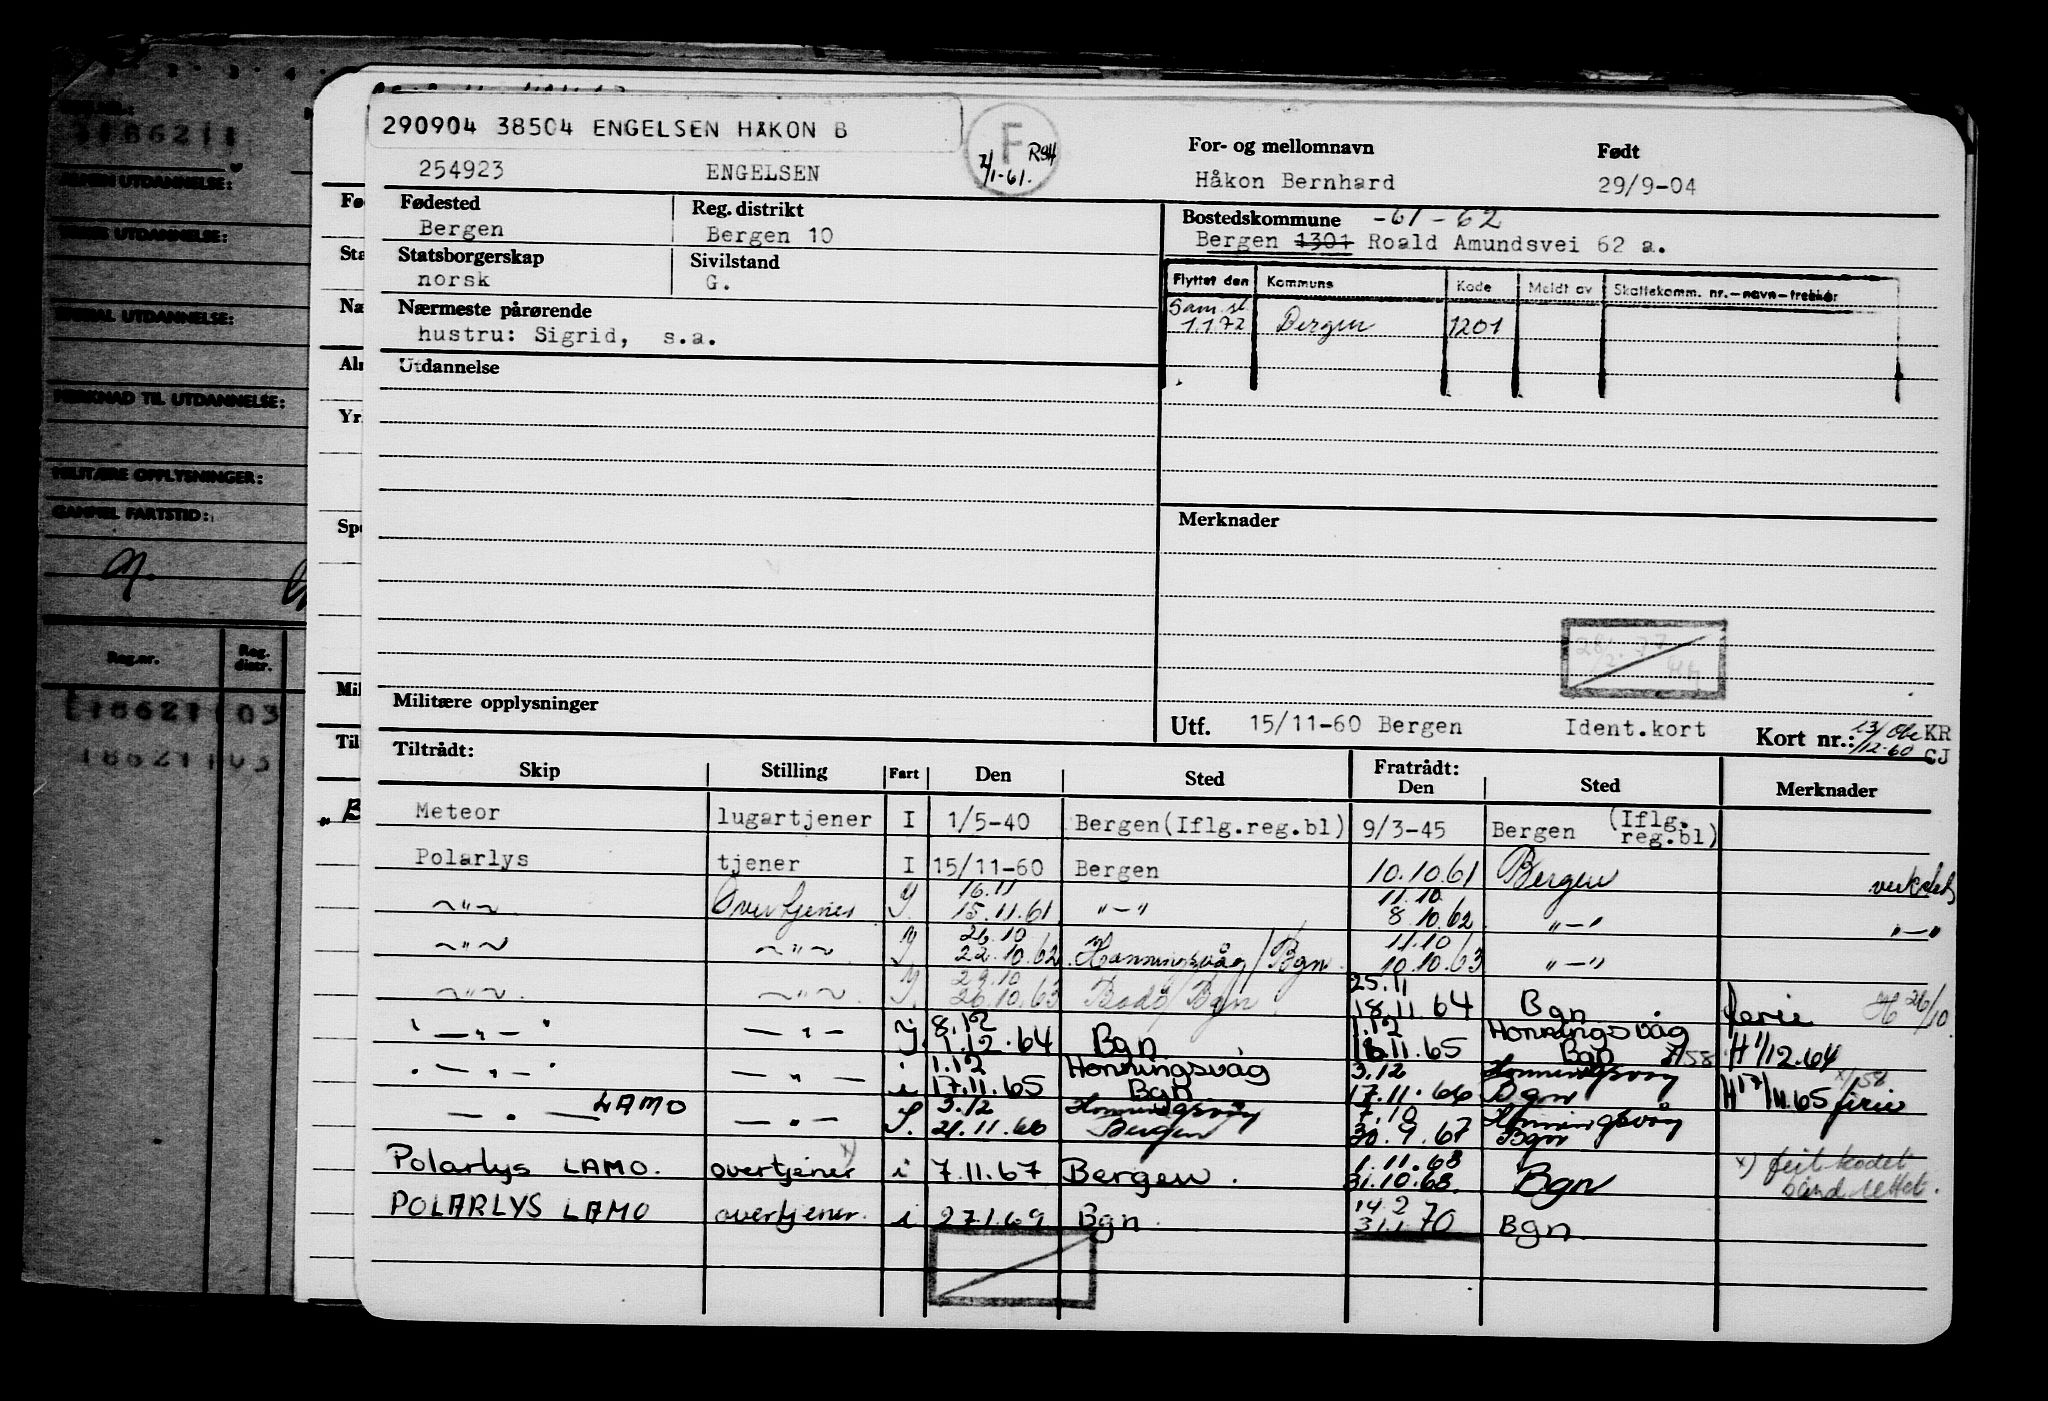 290904 38504 ENGELSEN HÅKON B
254923 ENGELSEN
F
2/1-61.
For- og mellomnavn
Håkon Bernhard
Født
29/9-04
Fødested
Bergen
Reg. distrikt
Bergen 10
Bostedskommune -61-62
Bergen 1301 Roald Amundsvei 62 a.
Statsborgerskap
norsk
Sivilstand
G.
Nærmeste pårørende
hustru: Sigrid, s.a.
Flyttet den Kommune Kode Meldt av Skattekomm. nr.-navn-trekkår
Sam. sl.
1.1.72 Bergen 1201
Utdannelse
Merknader
Militære opplysninger
Utf. 15/11-60 Bergen Ident.kort Kort nr.: KR
CJ
Tiltrådt: Fratrådt:
Skip Stilling Fart Den Sted Den Sted Merknader
Meteor lugartjener I 1/5-40 Bergen(Iflg.reg.bl) 9/3-45 Bergen (Iflg. reg.bl)
Polarlys tjener I 15/11-60 Bergen 10.10.61 Bergen
16.11 11.10
~"~ Overtjener Y. 15.11.61 "-" 8.10.62 "-" "-"
26.10 11.10
~"~ ~"~ Y 22.10.62 Honningsvåg/Bgn. 10.10.63 "-"
29.10 25.11
~"~ ~"~ Y. 26.10.63 Bodø/Bgn 18.11.64 Bgn. ferie H 26/10.
8.12 1.12 Honningsvåg
"—"—" —"— Y. 1.12.64 Bgn 18.11.65 Bgn H 1/12.64
1.12 Honningsvåg 3.12 Honningsvåg
"—"—" —"— i 17.11.65 Bgn. 17.11.66 Bgn H 17/11.65 ferie
3.12 Honningsvåg 7.10 Honningsvåg
—"— LAMO —"— I. 21.11.66 Bergen 30.9.67 Bgn
1.11.68
Polarlys LAMO. overtjener x) i 7.11.67 Bergen. 31.10.68. Bgn x) feil kodet
bånd rettet.
14.2
POLARLYS LAMO overtjener. i 27.1.69 Bgn. 31.1.70 Bgn.
ALMEN UTDANNELSE:
SPESIAL UTDANNELSE:
MERKNAD TIL UTDANNELSE:
MILITÆRE OPPLYSNINGER:
GAMMEL FARTSTID:
Reg.nr. Reg. distr.